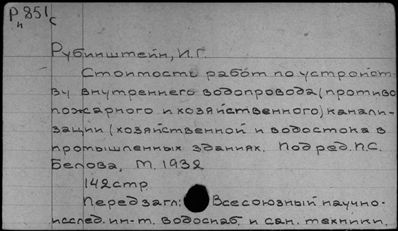 Р851с
н
Рубинштейн, И.Г.
Стоимость работ по устройст-
ву внутреннего водопровода (противо
пожарного и хозяйственного) канали-
зации (хозяйственной и водостока в
промышленных зданиях. Под ред. П.С.
Белова, М. 1932
142 стр
Перед загл: Всесоюзный научно-
исслед. ин-т. водоснаб. и сан. техники.